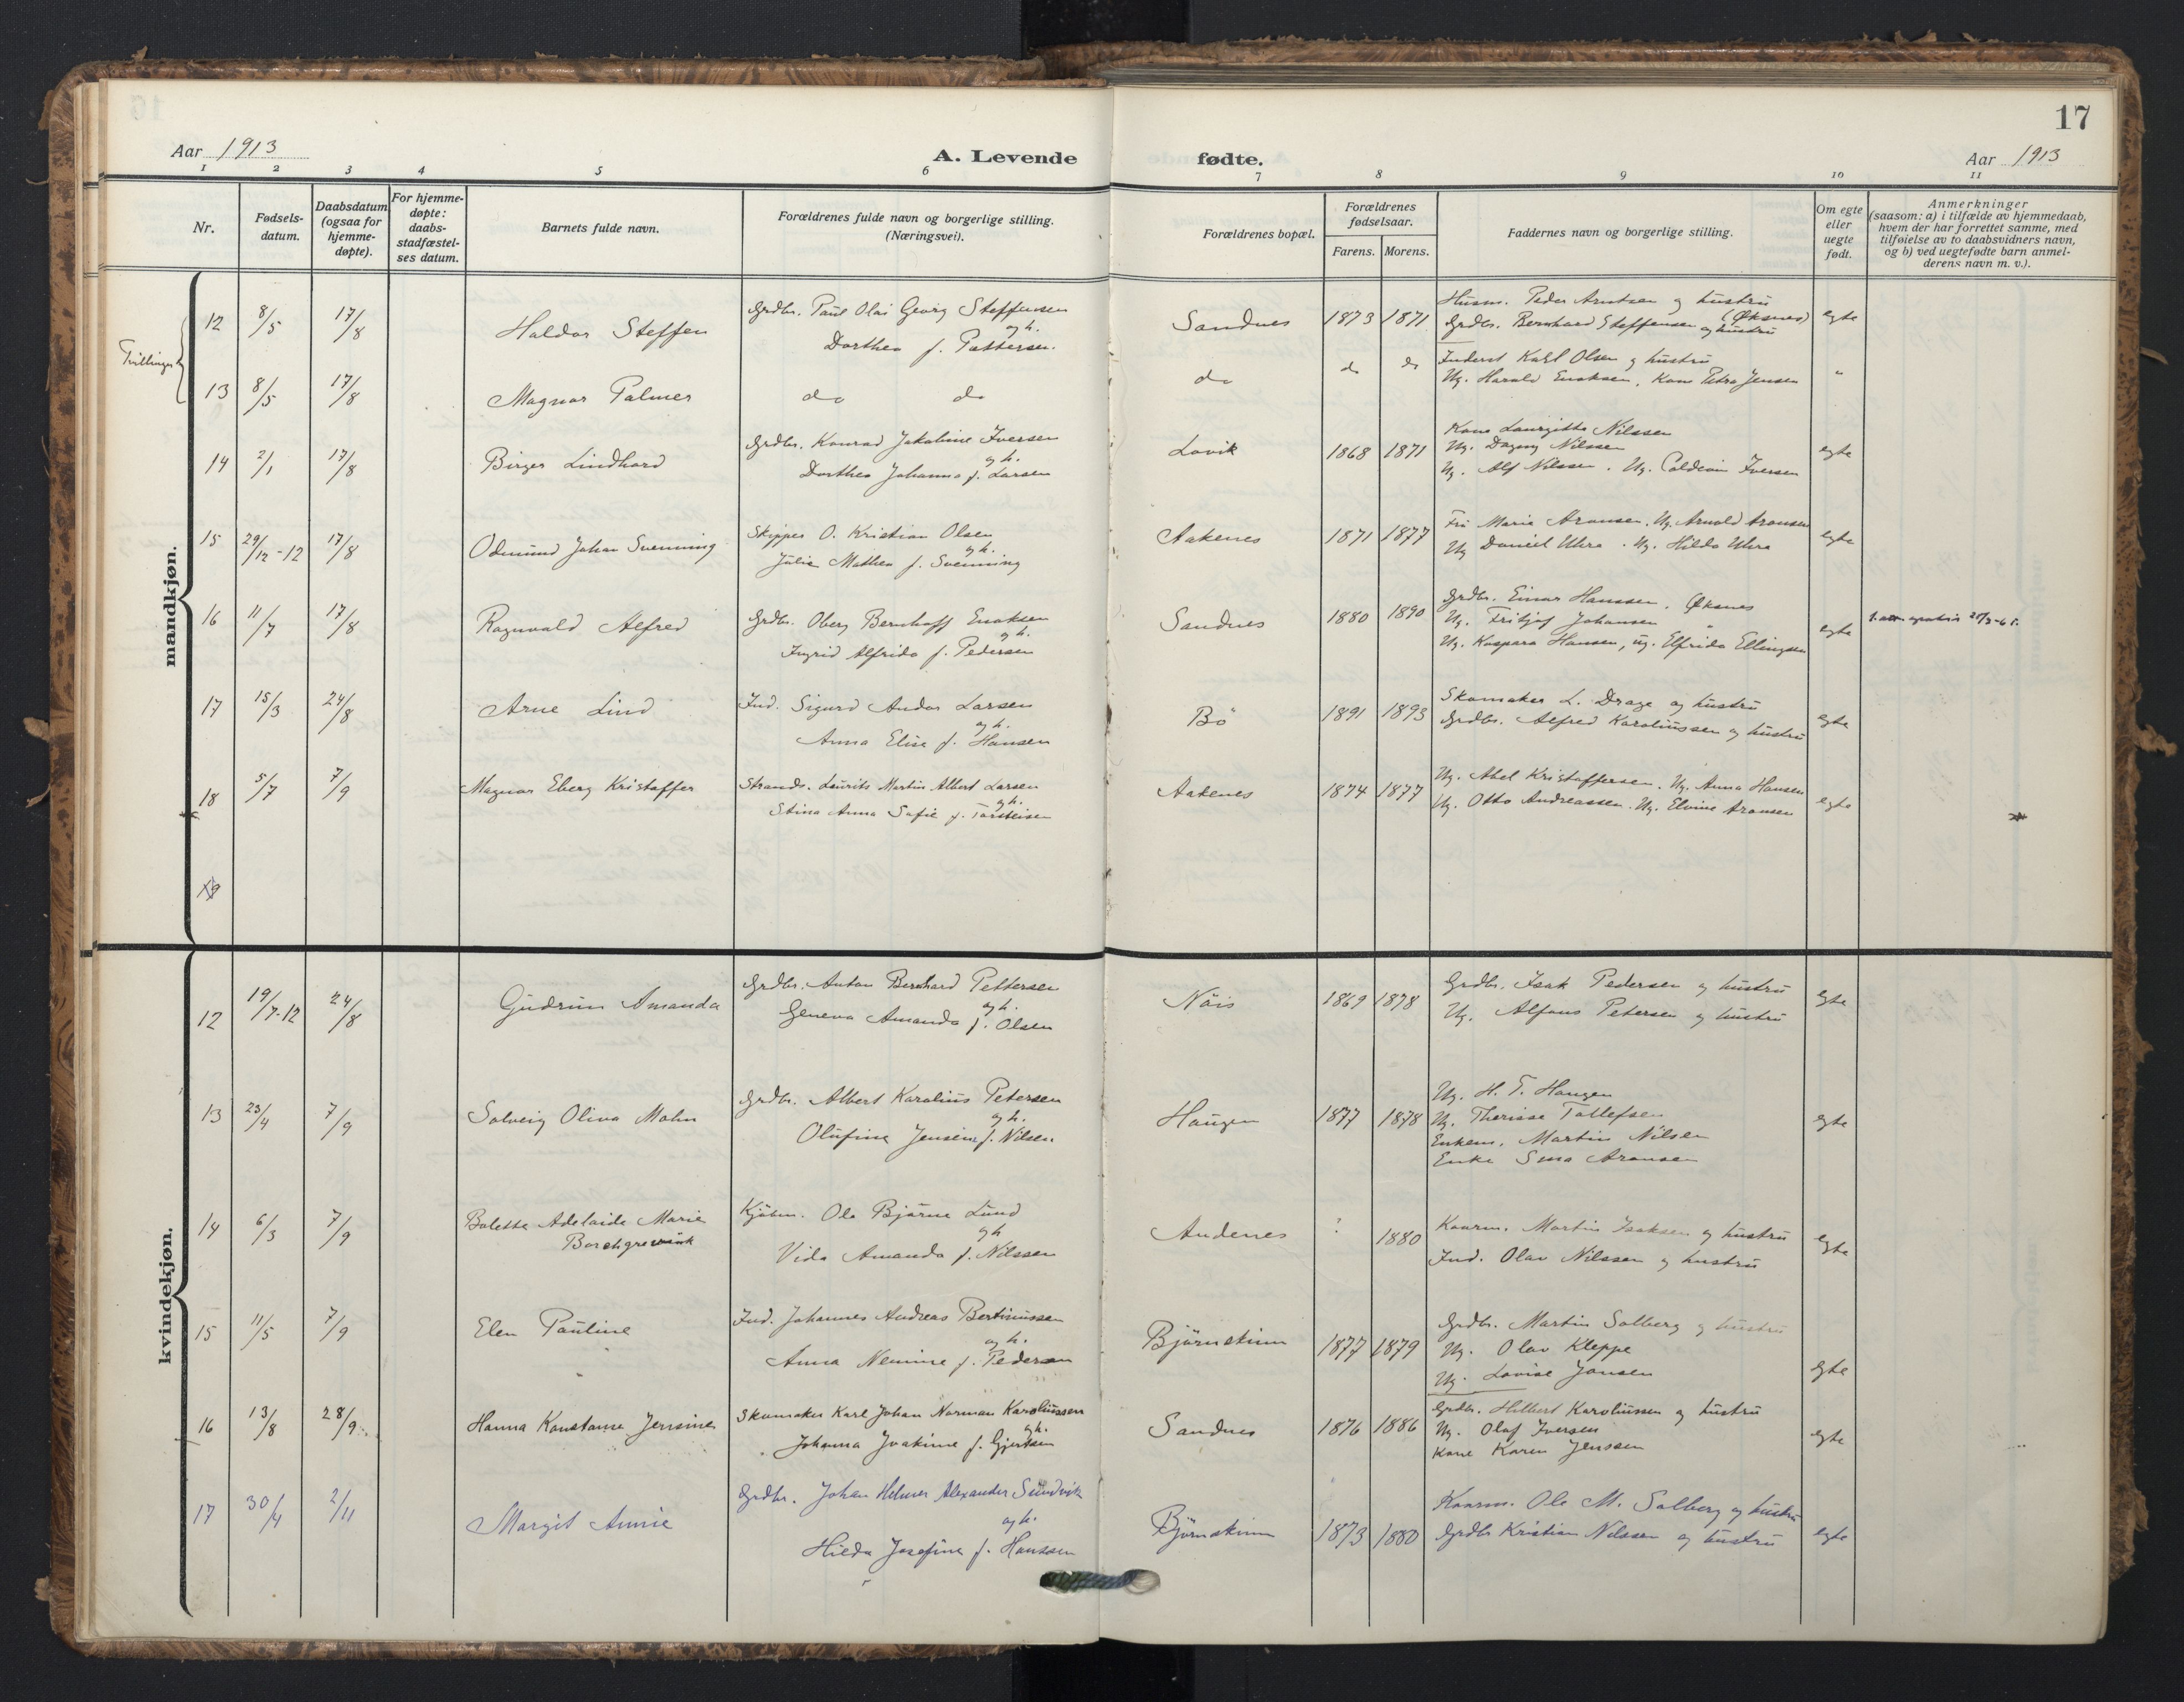 17
Aar 1913
A. Levende
fødte.
Aar 1913
1 2 3 4 5 6 7 8 9 10 11
Nr.
Fødsels-
datum.
Daabsdatum
(ogsaa for
hjemme-
døpte).
For hjemme-
døpte:
daabs-
stadfæstel-
ses datum.
Barnets fulde navn.
Forældrenes fulde navn og borgerlige stilling.
(Næringsvei).
Forældrenes bopæl.
Forældrenes
fødselsaar.
Farens. Morens.
Faddernes navn og borgerlige stilling.
Om egte
eller
uegte
født.
Anmerkninger
(saasom: a) i tilfælde av hjemmedaab,
hvem der har forrettet samme, med
tilføielse av to daabsvidners navn,
og b) ved uegtefødte barn anmel-
derens navn m. v.).
mandkjøn.
Tvillinger
12 8/5 17/8 Haldor Steffen
Grdbr. Paul Olai Georg Steffensen
og h.
Dorthea f. Pettersen
Sandnes 1873 1871
Husm. Peder Arntsen og hustru
(Øksnes)
Grdbr. Bernhard Steffensen og hustru
egte
13 8/5 17/8 Magnar Palmer
do do
do do do
Inderst Karl Olsen og hustru
Ug. Harald Enoksen, Kone Petra Jensen
"
14 2/1 17/8 Birger Lindhard
Grdbr. Konrad Jakobine Iversen
og h.
Dorthea Johanna f. Larsen
Lovik 1868 1871
Kone Laurgitta Nilssen
Ug. Dagny Nilssen
Ug. Alf Nilssen. Ug. Coldevin Iversen
egte
15 29/12-12 17/8 Odmund Johan Svenning
Skipper O. Kristian Olsen
og h.
Julie Mathea f. Svenning
Aakenes 1871 1877
Fru Marie Aronsen. Ug. Arnold Aronsen
Ug Daniel Uhre. Ug. Hilda Uhre
egte
16 11/7 17/8 Ragnvald Alfred
Grdbr. Oberg Bernhoff Enoksen
og h.
Ingrid Alfrida f. Pedersen
Sandnes 1880 1890
Grdbr. Einar Hanssen, Øksnes
Ug. Fritjof Johansen "
Ug. Kaspara Hansen, ug. Elfrida Ellingsen
egte
17 15/3 24/8 Arne Lind
Ind. Sigurd Andor Larsen
og h.
Anna Elise f. Hansen
Bö 1891 1893
Skomaker L. Drage og hustru
Grdbr. Alfred Karoliussen og hustru
egte
18 5/7 7/9 Magnar Eberg Kristoffer
Strands. Laurits Martin Albert Larsen
og h.
Stina Anna Sofie f. Torsteisen
Aakenes 1874 1877
Ug. Abel Kristoffersen. Ug. Anna Hansen
Ug. Otto Andreassen. Ug. Elvine Aronsen
egte
19
kvindekjøn.
12 19/7-12 24/8 Gudrun Amanda
Grdbr. Anton Bernhard Pettersen
og h.
Geneva Amanda f. Olsen
Nöis 1869 1878
Grdbr. Isak Pedersen og hustru
Ug. Alfons Petersen og hustru
egte
13 23/4 7/9 Solveig Oliva Malm
Grdbr. Albert Karolius Petersen
og h.
Olufine Jensine f. Nilsen
Haugen 1877 1878
Ug. H. T. Haugen
Ug. Therisse Tollefsen
Enkem. Martin Nilsen
Enke Aronsen
egte
14 6/3 7/9 Bolette Adelaide Marie
Borchgrevink
Kjöbm. Ole Bjarne Lund
og h
Vida Amanda f. Nilssen
Andenes ? 1880
Kaarm. Martin Isaksen og hustru
Ind. Olav Nilssen og hustru
egte
15 11/5 7/9 Elen Pauline
Ind. Johannes Andreas Bertinussen
og h.
Anna Nemine f. Pedersen
Björnskinn 1877 1879
Grdbr. Martin Solberg og hustru
Ug. Olav Kleppe
Ug. Lovise Jansen
egte
16 13/8 28/9 Hanna Konstanse Jensine
Skomaker Karl Johan Norman Karoliussen
og h.
Johanna Joakime f. Gjertsen
Sandnes 1876 1886
Grdbr. Hilbert Karoliussen og hustru
Ug. Olaf Iversen
Kone Karen Jenssen
egte
17 30/4 2/11 Margit Annie
Grdbr. Johan Helmer Alexander Sundvik
og h.
Hilda Josefine f. Hanssen
Björnskinn 1873 1880
Kaarm. Ole M. Solberg og hustru
Grdbr Kristian Nilssen og hustru
egte